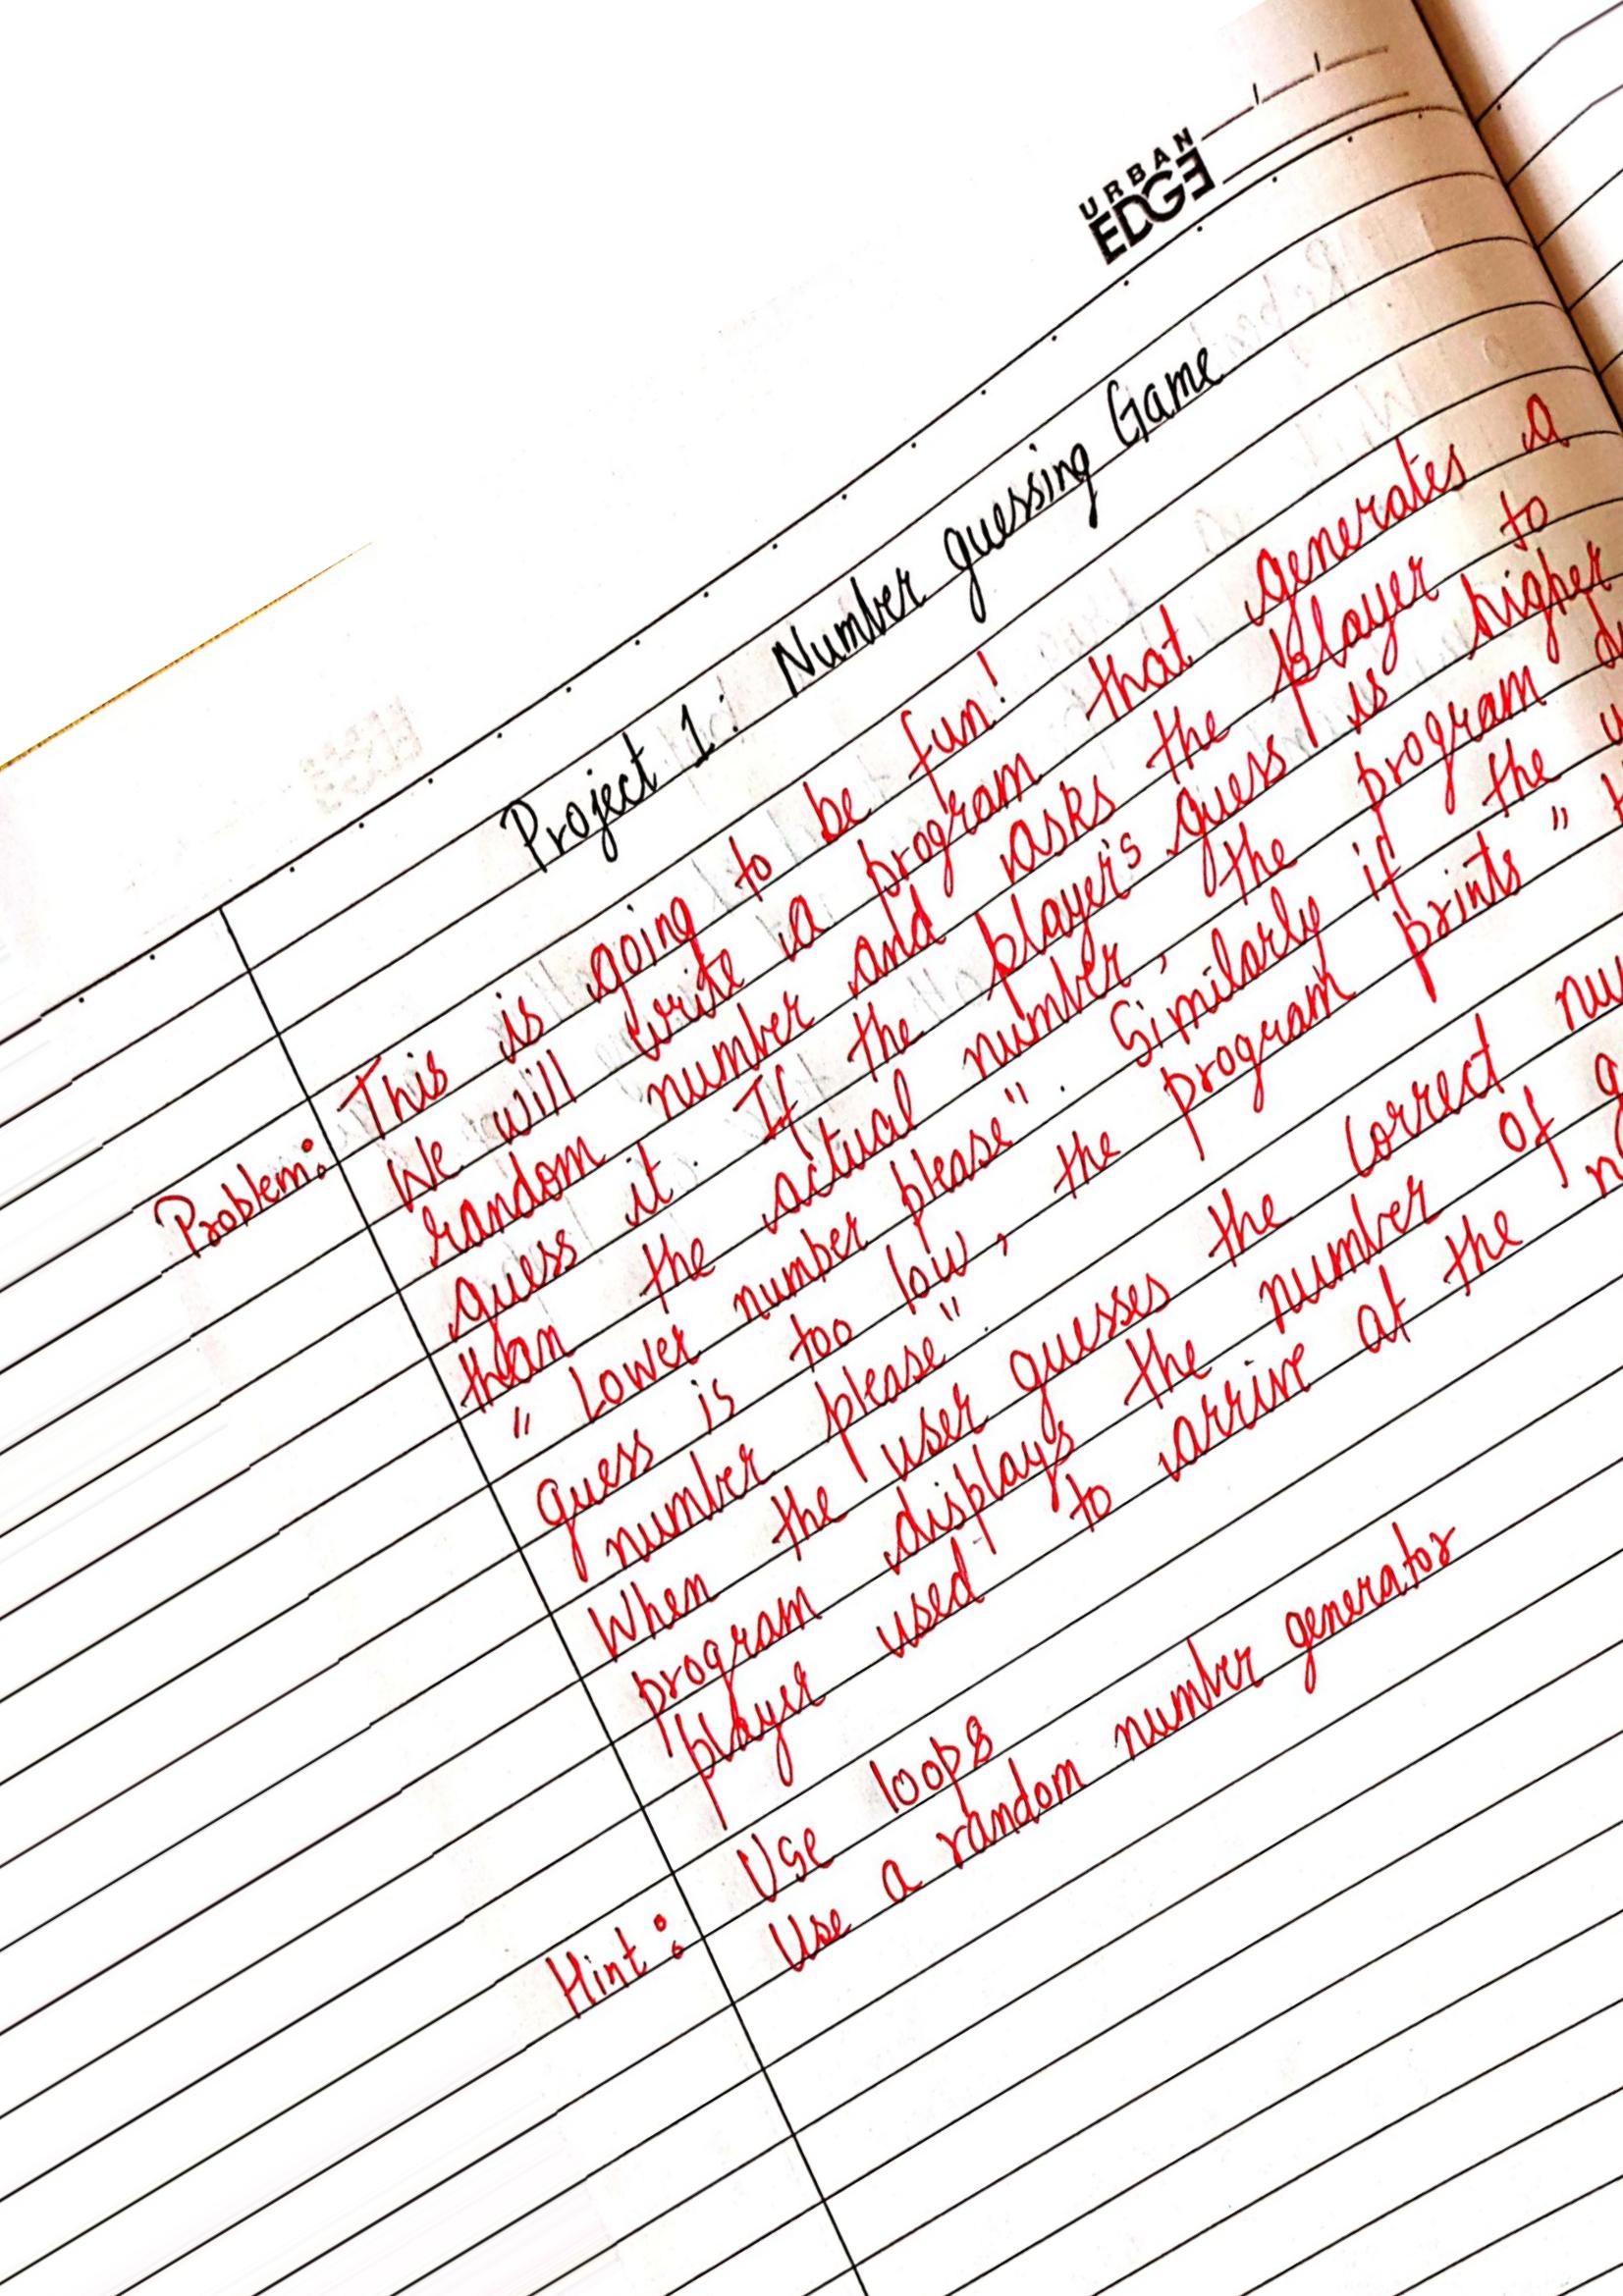 URBAN
EDGE
Project 1: Number guessing Game
Problem: This is going to be fun!
We will write a program that generates a
random number and asks the player to
guess it. If the player's guess is higher
than the actual number, the program
"Lower number please". Similarly if the
guess is too low, the program prints "
number please".
When the user guesses the correct
program displays the number of
player used to arrive at the
Hint: Use loops
Use a random number generator